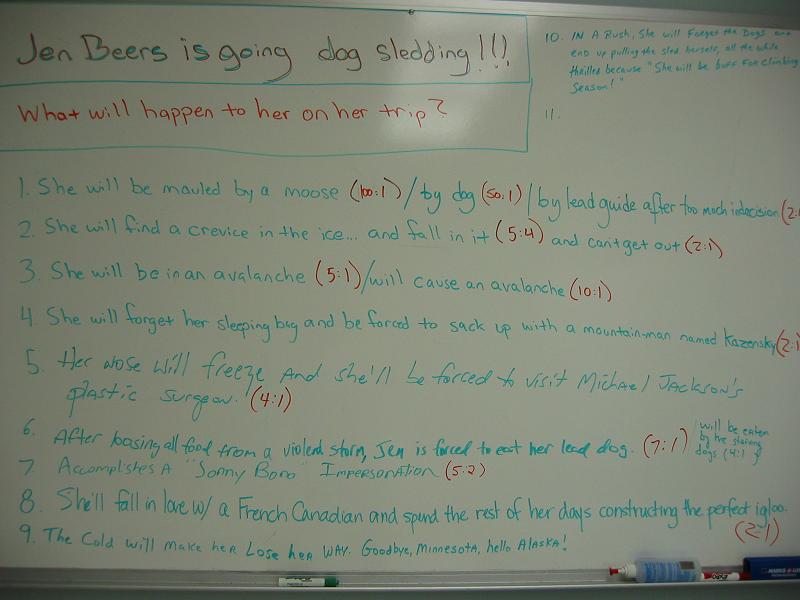 Jen Beers is going dog sledding!!!
What will happen to her on her trip?
1. She will be mauled by a moose (100:1) / by dog (50:1) / by lead guide after too much indecision (2:1
2. She will find a crevice in the ice... and fall in it (5:4) and can't get out (2:1)
3. She will be in an avalanche (5:1) / will cause an avalanche (10:1)
4. She will forget her sleeping bag and be forced to sack up with a mountain-man named Kazensky (2:1
5. Her nose will freeze and she'll be forced to visit Michael Jackson's
plastic surgeon. (4:1)
6. After loosing all food from a violent storm, Jen is forced to eat her lead dog. (7:1)
/ will be eaten
by the starving
dogs (4:1)
7. Accomplishes A "Sonny Bono" Impersonation (5:2)
8. She'll fall in love w/ a French Canadian and spend the rest of her days constructing the perfect igloo.
(2:1)
9. The Cold will make her Lose her WAY. Goodbye, Minnesota, hello ALASKA!
10. IN A Rush, She will Forget the Dogs and
end up pulling the sled herself, all the while
thrilled because "She will be buff for climbing
Season!"
11.
EXPO